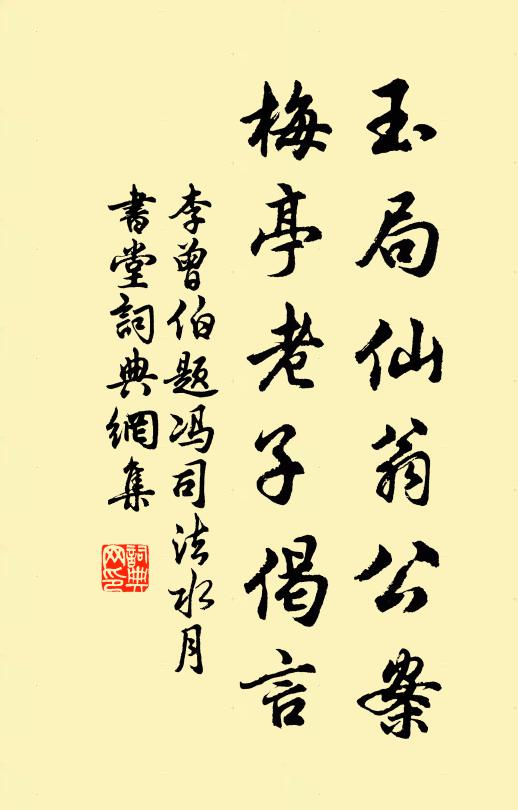 玉局仙翁公案
梅亭老子偈言
李曾伯题冯司法水月
書堂詞典網集
詞典网印